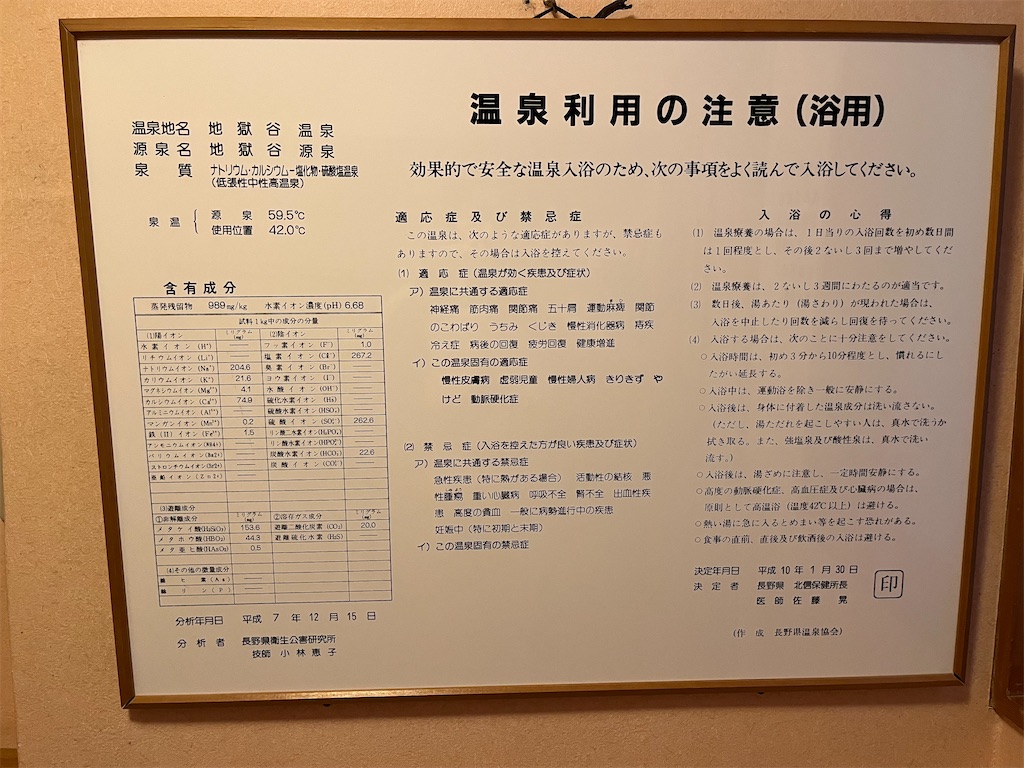 温泉利用の注意(浴用)
効果的で安全な温泉入浴のため、次の事項をよく読んで入浴してください。
温泉地名 地獄谷温泉
源泉名 地獄谷源泉
泉質 ナトリウム・カルシウムー塩化物・硫酸塩温泉
(低張性中性高温泉)
泉温 { 源泉 59.5℃
使用位置 42.0℃
含有成分
蒸発残留物 989mg/kg 水素イオン濃度(pH)6.68
試料1kg中の成分の分量
(1)陽イオン ミリグラム(mg) (2)陰イオン ミリグラム(mg)
水素イオン(H⁺) ― フッ素イオン(F⁻) 1.0
リチウムイオン(Li⁺) ― 塩素イオン(Cl⁻) 267.2
ナトリウムイオン(Na⁺) 204.6 臭素イオン(Br⁻) ―
カリウムイオン(K⁺) 21.6 ヨウ素イオン(I⁻) ―
マグネシウムイオン(Mg²⁺) 4.1 水酸イオン(OH⁻) ―
カルシウムイオン(Ca²⁺) 74.9 硫化水素イオン(HS) ―
アルミニウムイオン(Al³⁺) ― 硫酸水素イオン(HSO₄⁻) ―
マンガンイオン(Mn²⁺) 0.2 硫酸イオン(SO₄²⁻) 262.6
鉄(II)イオン(Fe²⁺) 1.5 リン酸二水素イオン(H₂PO₄⁻) ―
アンモニウムイオン(NH4+) ― リン酸水素イオン(HPO₄²⁻) ―
バリウムイオン(Ba2+) ― 炭酸水素イオン(HCO₃⁻) 22.6
ストロンチウムイオン(Sr2+) ― 炭酸イオン(CO₃²⁻) ―
亜鉛イオン(Zn2+) ―
(3)遊離成分
①非解離成分 ミリグラム(mg) ②溶存ガス成分 ミリグラム(mg)
メタケイ酸(H₂SiO₃) 153.6 遊離二酸化炭素(CO₂) 20.0
メタホウ酸(HBO₂) 44.3 遊離硫化水素(H₂S) ―
メタ亜ヒ酸(HAsO₂) 0.5
(4)その他の微量成分
総ヒ素(As) ―
総リン(P) ―
分析年月日 平成7年12月15日
分析者 長野県衛生公害研究所
技師 小林恵子
適応症及び禁忌症
この温泉は、次のような適応症がありますが、禁忌症も
ありますので、その場合は入浴を控えてください。
(1) 適応症(温泉が効く疾患及び症状)
ア) 温泉に共通する適応症
神経痛 筋肉痛 関節痛 五十肩 運動麻痺 関節
のこわばり うちみ くじき 慢性消化器病 痔疾
冷え症 病後の回復 疲労回復 健康増進
イ) この温泉固有の適応症
慢性皮膚病 虚弱児童 慢性婦人病 きりきず や
けど 動脈硬化症
(2) 禁忌症(入浴を控えた方が良い疾患及び症状)
ア) 温泉に共通する禁忌症
急性疾患(特に熱がある場合) 活動性の結核 悪
性腫瘍 重い心臓病 呼吸不全 腎不全 出血性疾
患 高度の貧血 一般に病勢進行中の疾患
妊娠中(特に初期と末期)
イ) この温泉固有の禁忌症
入浴の心得
(1) 温泉療養の場合は、1日当りの入浴回数を初め数日間
は1回程度とし、その後2ないし3回まで増やしてくだ
さい。
(2) 温泉療養は、2ないし3週間にわたるのが適当です。
(3) 数日後、湯あたり(湯さわり)が現われた場合は、
入浴を中止したり回数を減らし回復を待ってください。
(4) 入浴する場合は、次のことに十分注意をしてください。
○入浴時間は、初め3分から10分程度とし、慣れるにし
たがい延長する。
○入浴中は、運動浴を除き一般に安静にする。
○入浴後は、身体に付着した温泉成分は洗い流さない。
(ただし、湯ただれを起こしやすい人は、真水で洗うか
拭き取る。また、強塩泉及び酸性泉は、真水で洗い
流す。)
○入浴後は、湯ざめに注意し、一定時間安静にする。
○高度の動脈硬化症、高血圧症及び心臓病の場合は、
原則として高温浴(温度42℃以上)は避ける。
○熱い湯に急に入るとめまい等を起こす恐れがある。
○食事の直前、直後及び飲酒後の入浴は避ける。
決定年月日 平成10年1月30日
決定者 長野県 北信保健所長
医師 佐藤晃
印
(作成 長野県温泉協会)